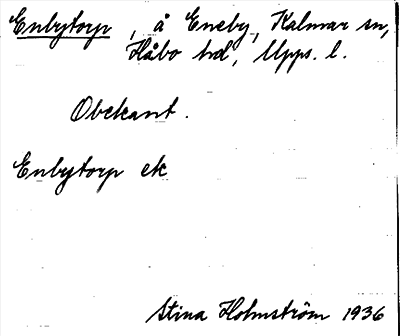 Enbytorp, å Eneby, Kalmar sn,
Håbo hd, Upps. l.
Obekant.
Enbytorp ek
Stina Holmström 1936